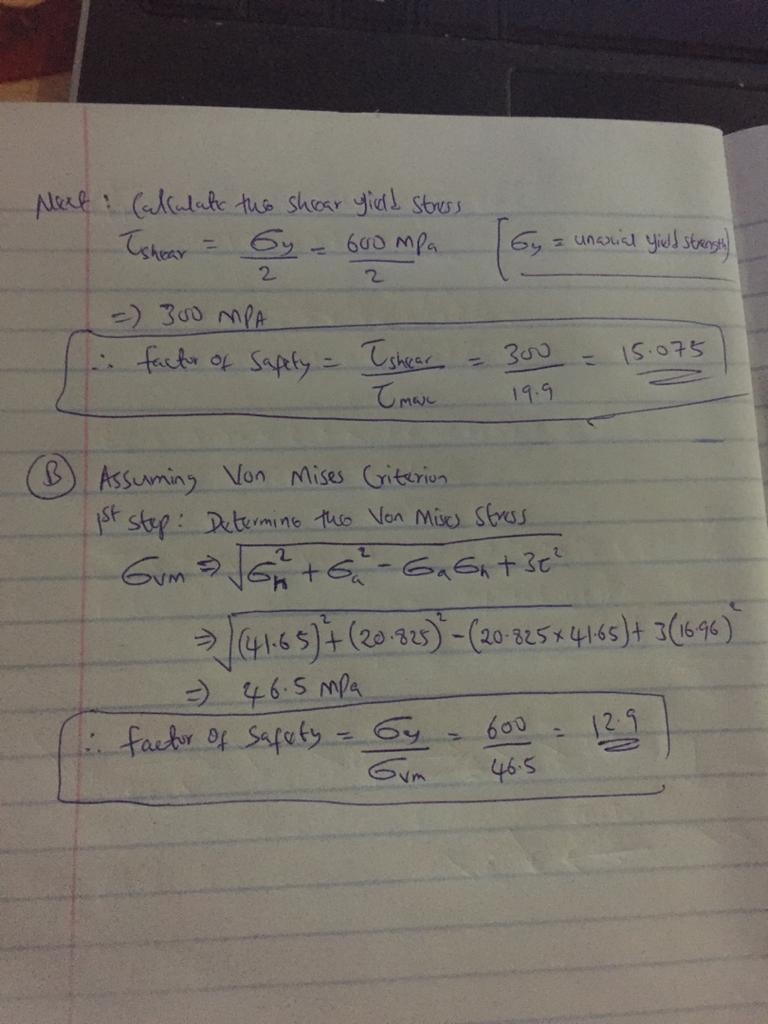 Next : Calculate the shear yield stress
τshear = σy/2 = 600 MPa/2 [σy = unaxial yield strength]
=> 300 MPA
∴ factor of Safety = τshear/τmax = 300/19.9 = 15.075
(B) Assuming Von Mises Criterion
1st step: Determine the Von Mises Stress
σvm => √(σh² + σa² - σaσh + 3τ²)
=> √((41.65)² + (20.825)² - (20.825 × 41.65) + 3(16.96)²)
=> 46.5 MPa
∴ factor of Safety = σy/σvm = 600/46.5 = 12.9